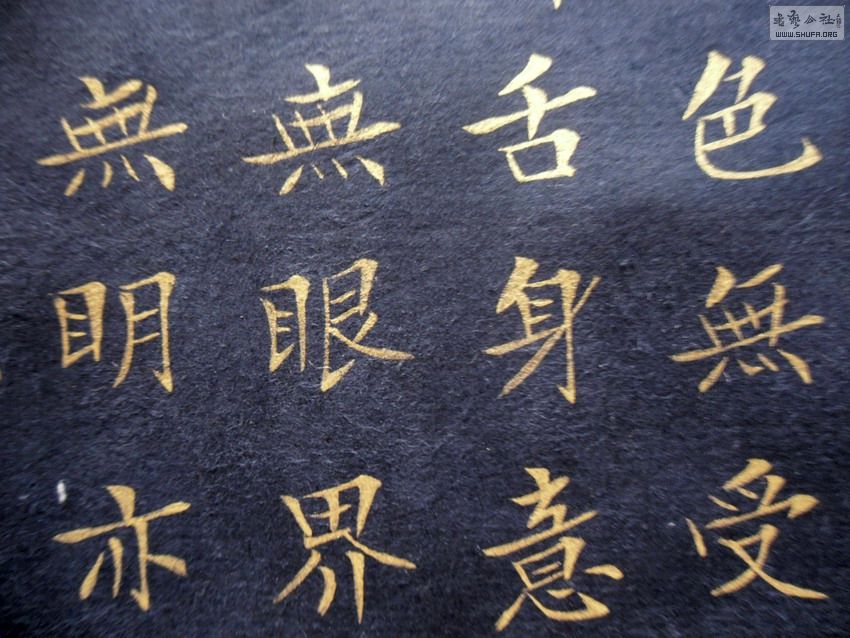 色無受
舌身意
無眼界
無明亦
WWW.SHUFA.ORG